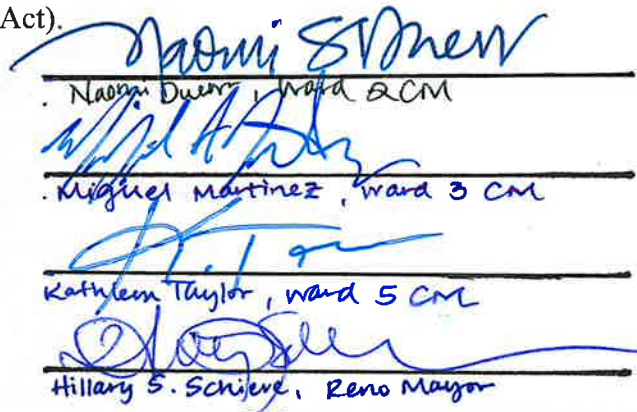 Act).
Naomi S Duerr
. Naomi Duerr, Ward 2 CM
. Miguel Martinez, ward 3 CM
K. T
Kathleen Taylor, ward 5 CM
Hillary S. Schieve, Reno Mayor